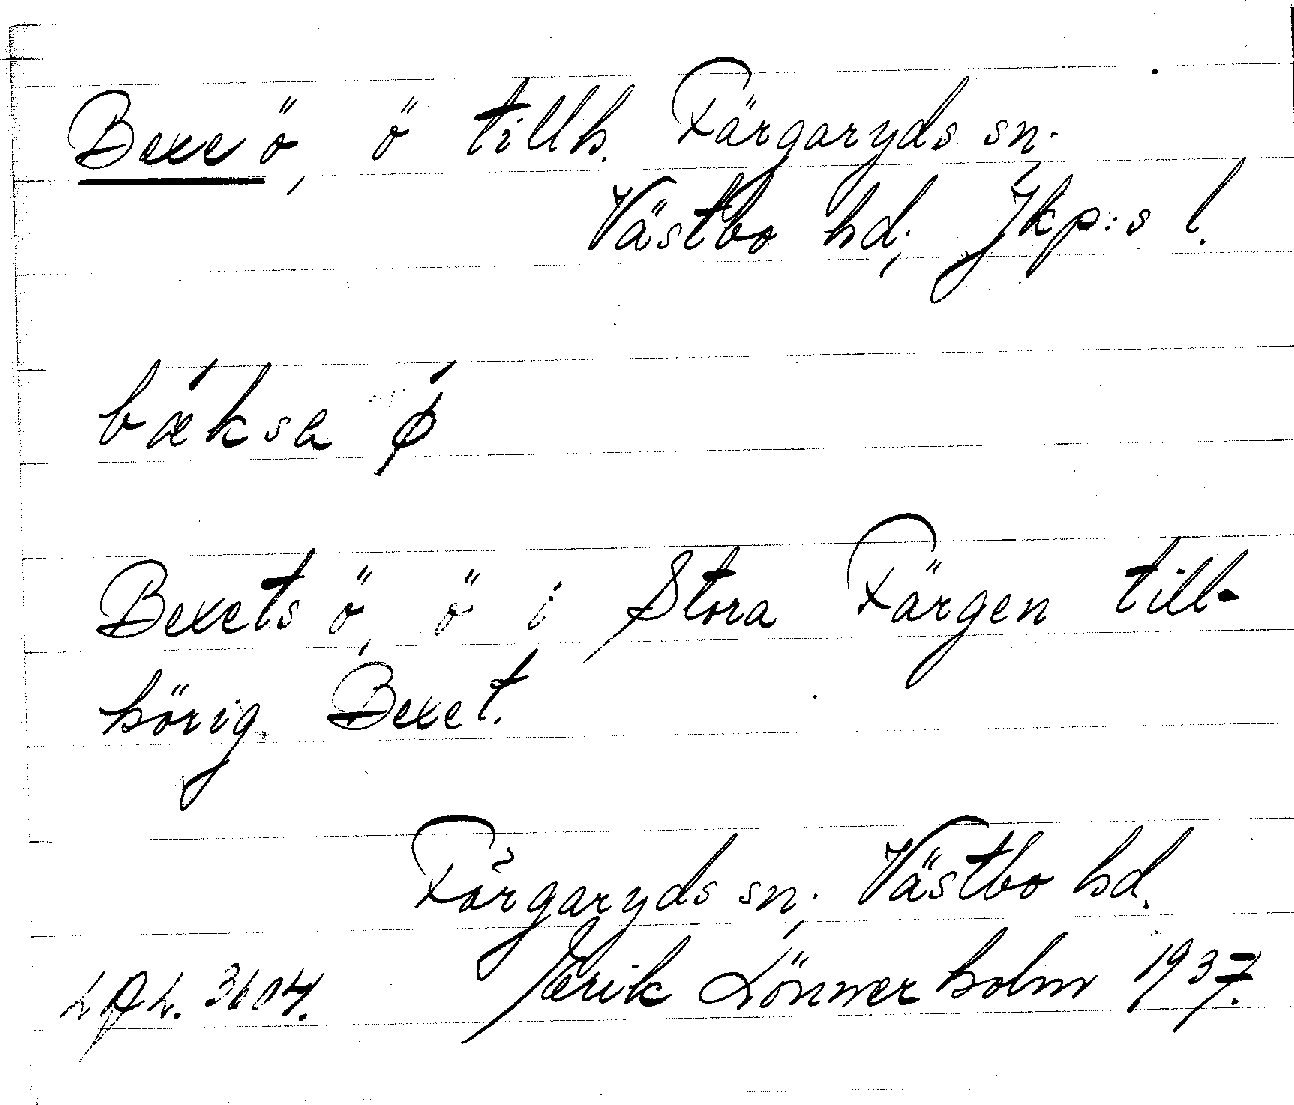 Bexe ö, ö tillh. Färgaryds sn.
Västbo hd, Jkp:s l.
bǽksa ǿ
Bexets ö, ö i Stora Färgen till-
hörig Bexet.
Färgaryds sn, Västbo hd.
3604. Erik Lönnerholm 1937.